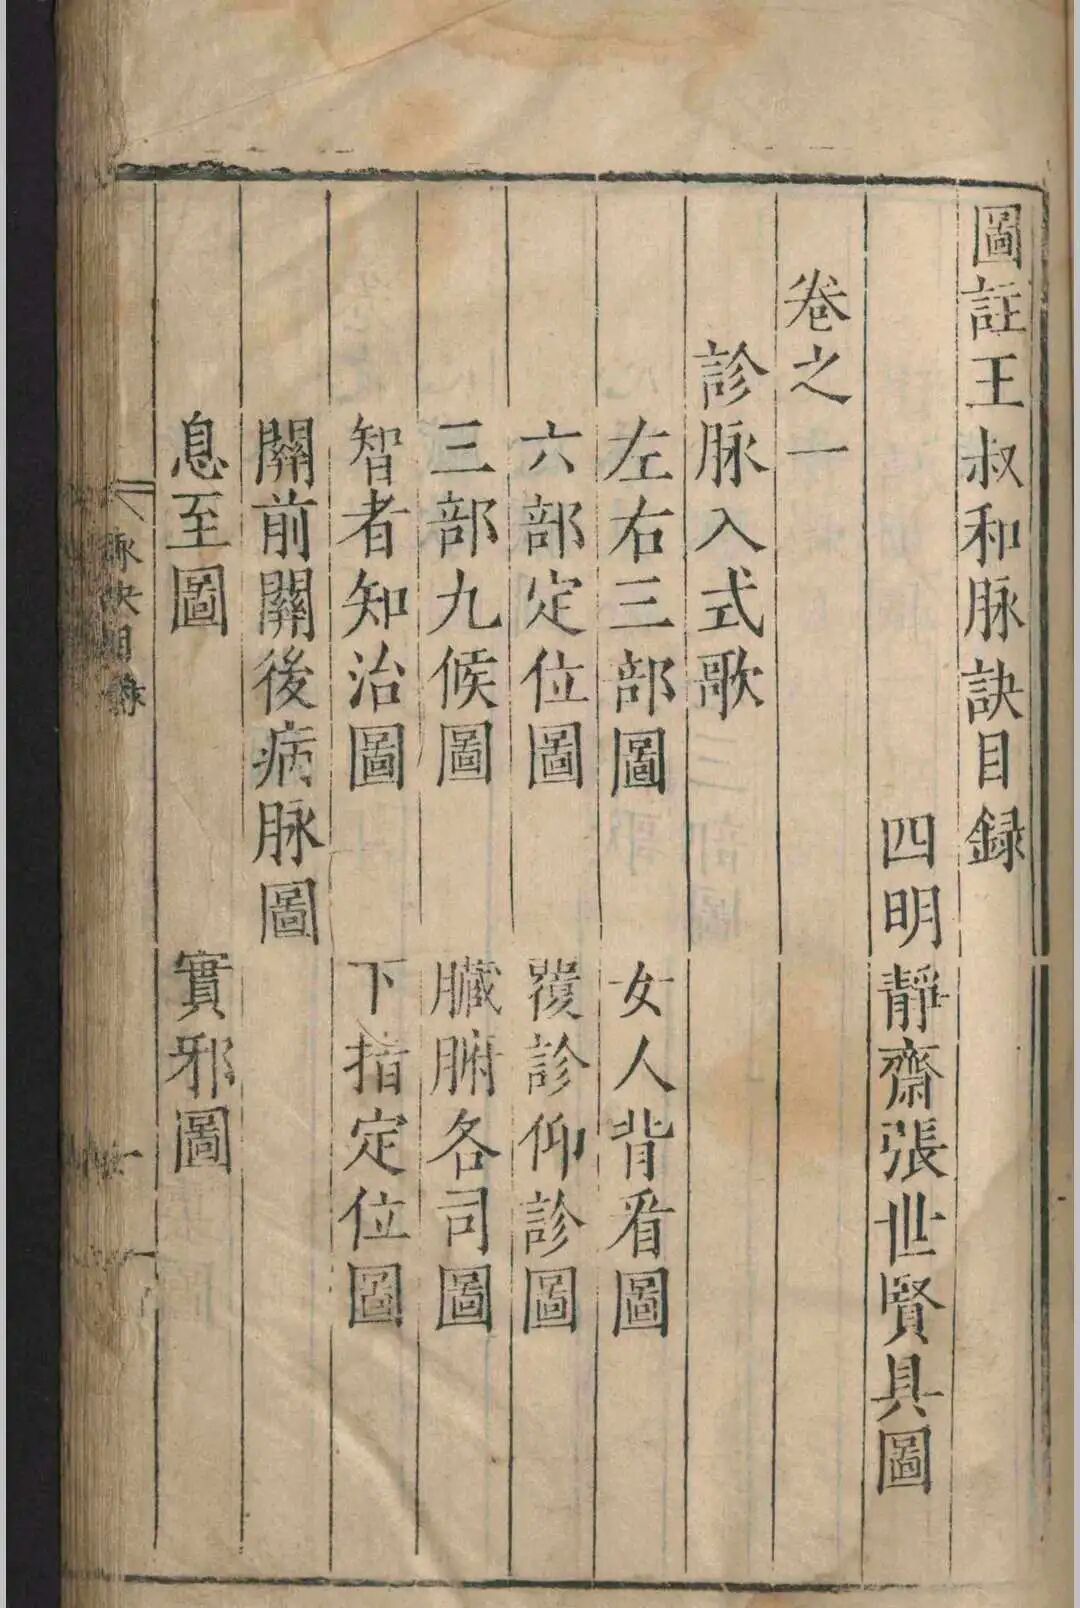 圖註王叔和脉訣目録
四明靜齋張世賢具圖
卷之一
診脉入式歌
左右三部圖 女人背看圖
六部定位圖 覆診仰診圖
三部九候圖 臟腑各司圖
智者知治圖 下指定位圖
關前關後病脉圖
息至圖 實邪圖
脉訣目録